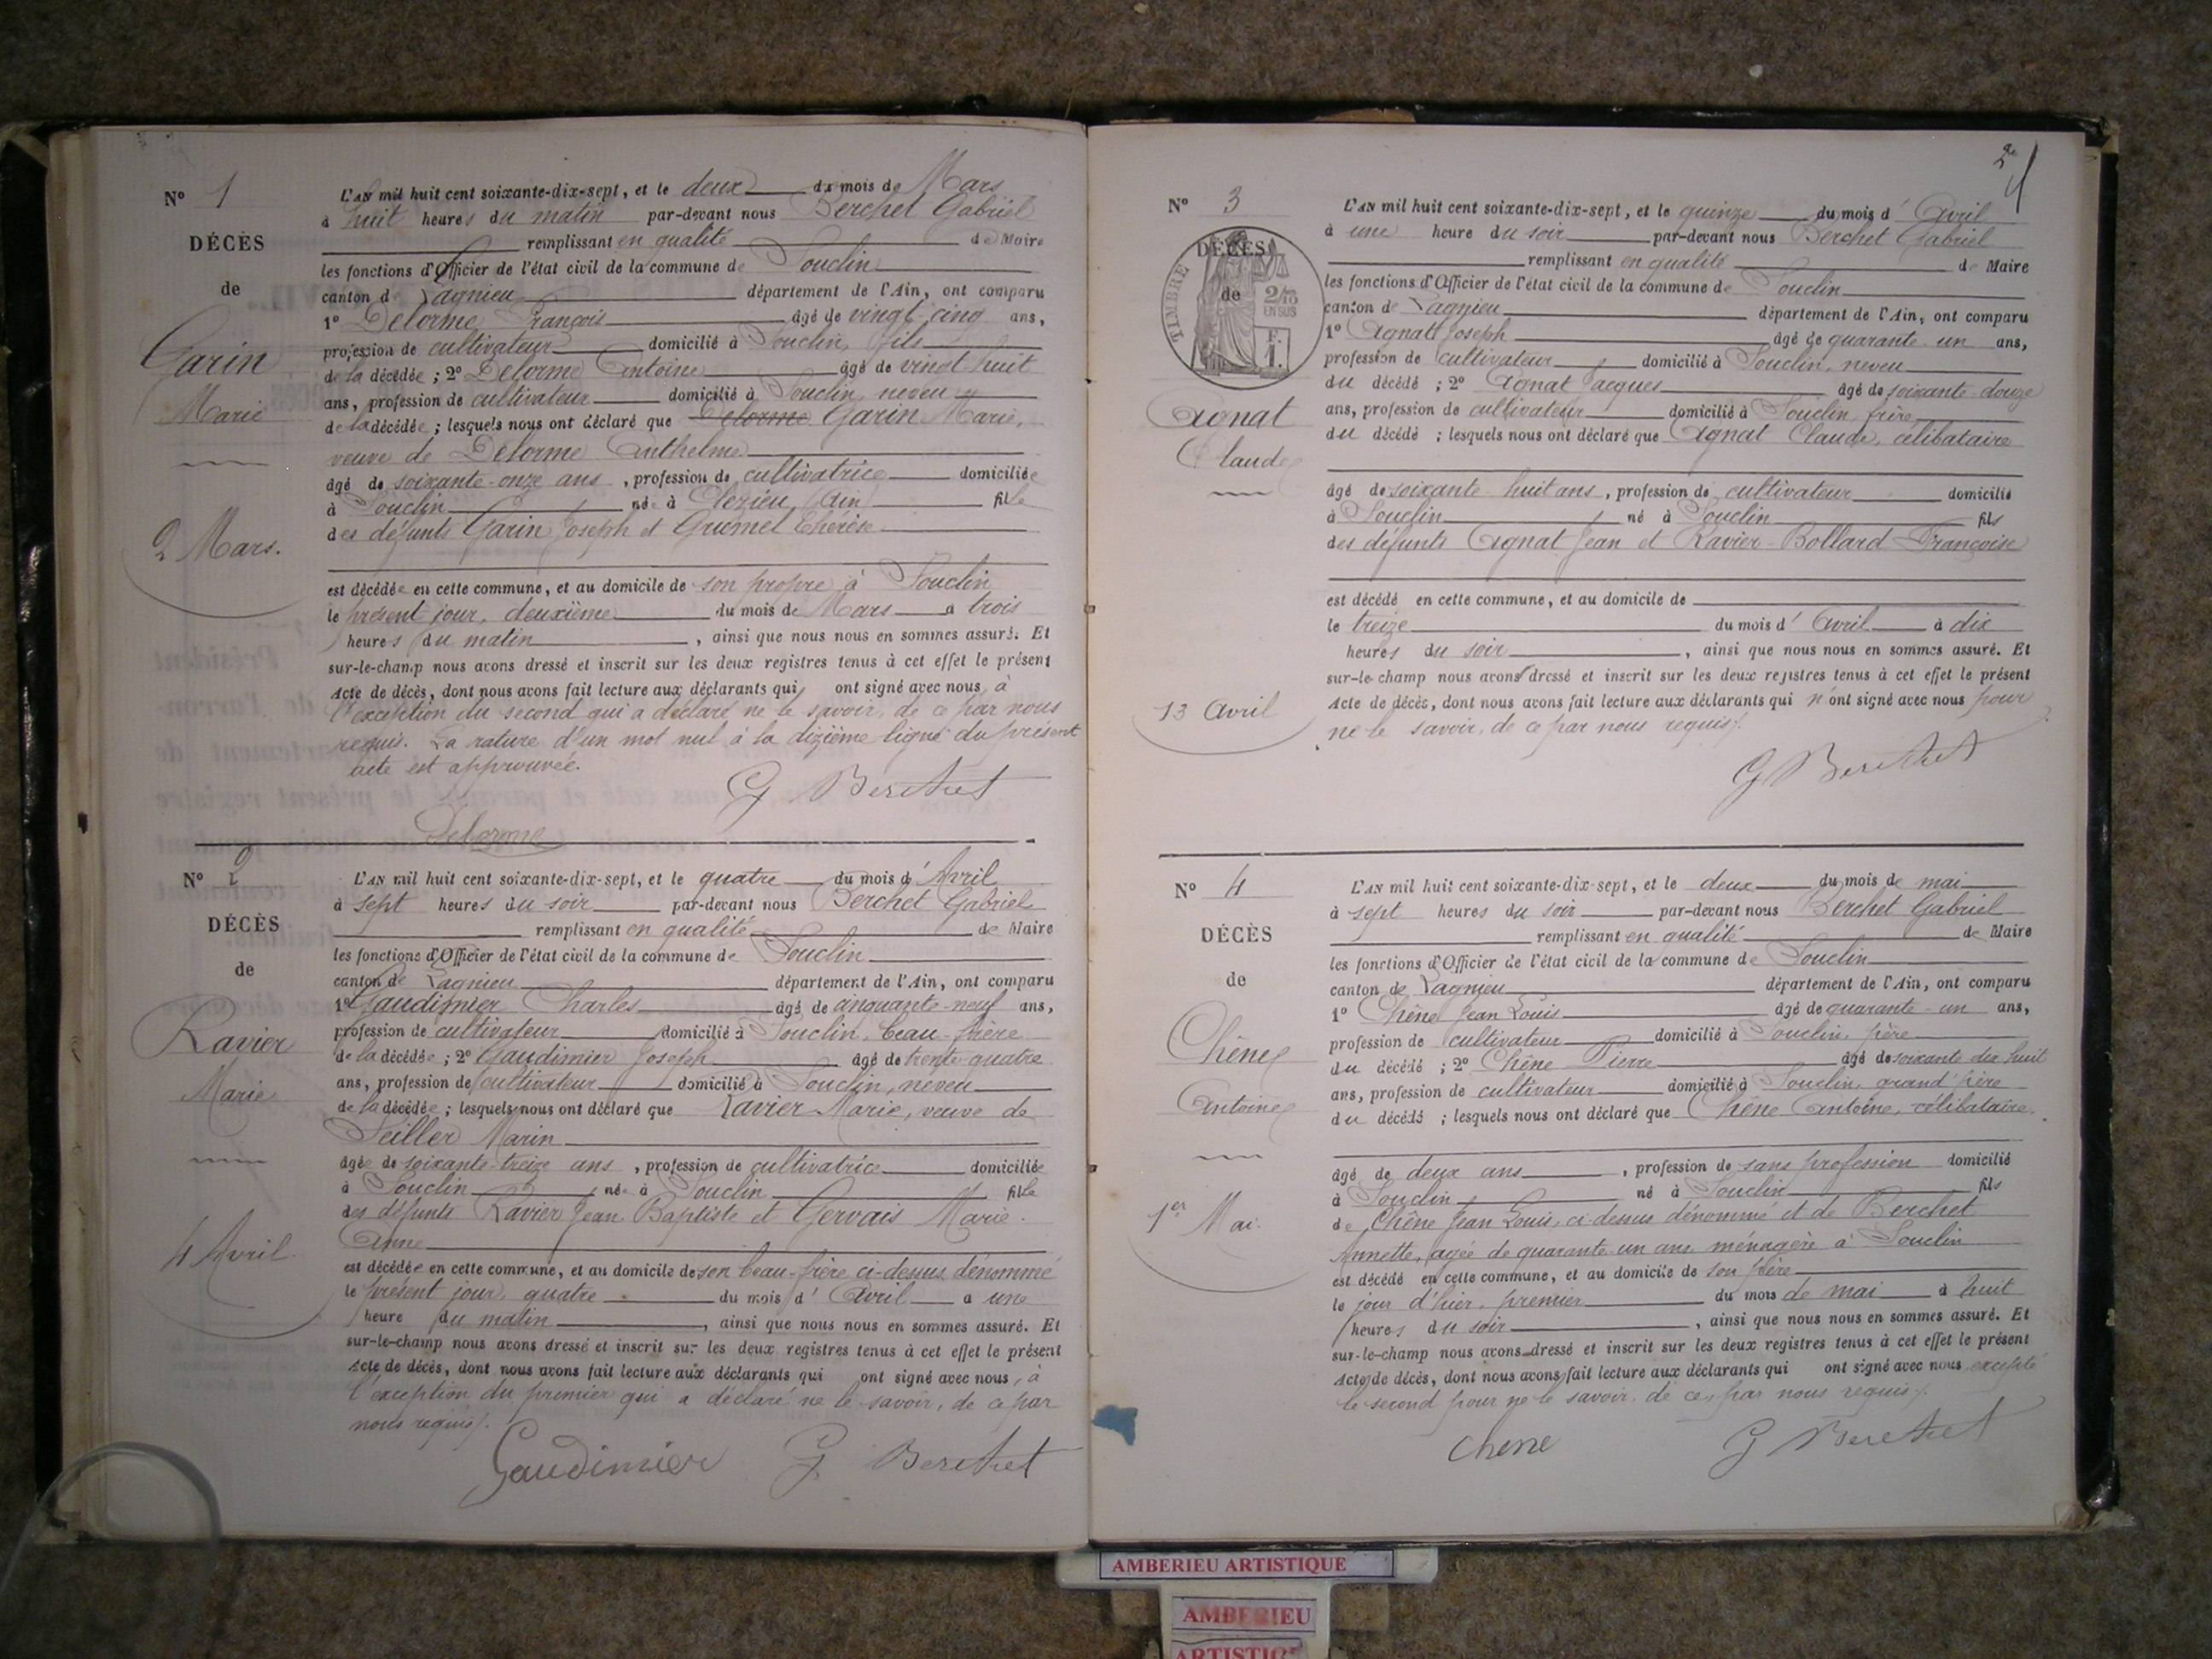 Nº 1
DÉCÈS
de
Garin
Marie
2 Mars.
L'AN mil huit cent soixante-dix-sept, et le deux du mois de Mars
à huit heures du matin par-devant nous Berchet Gabriel
remplissant en qualité de Maire
les fonctions d'Officier de l'état civil de la commune de Souclin
canton de Lagnieu département de l'Ain, ont comparu
1º Delorme François âgé de vingt-cinq ans,
profession de cultivateur domicilié à Souclin, fils
de la décédée ; 2º Delorme Antoine âgé de vingt huit
ans, profession de cultivateur domicilié à Souclin, neveu
de la décédée ; lesquels nous ont déclaré que Delorme Garin Marie,
veuve de Delorme Anthelme
âgé de soixante-onze ans, profession de cultivatrice domiciliée
à Souclin née à Cleyzieu (Ain) fille
des défunts Garin Joseph et Grumel Thérèse
est décédée en cette commune, et au domicile de son propre à Souclin
le présent jour, deuxième du mois de Mars à trois
heures du matin, ainsi que nous nous en sommes assuré. Et
sur-le-champ nous avons dressé et inscrit sur les deux registres tenus à cet effet le présent
Acte de décès, dont nous avons fait lecture aux déclarants qui ont signé avec nous, à
l'exception du second qui a déclaré ne le savoir, de ce par nous
requis. La rature d'un mot nul à la dixième ligne du présent
acte est approuvée.
G Berchet
Delorme
Nº 2
DÉCÈS
de
Ravier
Marie
4 Avril
L'AN mil huit cent soixante-dix-sept, et le quatre du mois d'Avril
à sept heures du soir par-devant nous Berchet Gabriel
remplissant en qualité de Maire
les fonctions d'Officier de l'état civil de la commune de Souclin
canton de Lagnieu département de l'Ain, ont comparu
1º Gaudimier Charles âgé de cinquante-neuf ans,
profession de cultivateur domicilié à Souclin, beau-frère
de la décédée ; 2º Gaudimier Joseph âgé de trente-quatre
ans, profession de cultivateur domicilié à Souclin, neveu
de la décédée ; lesquels nous ont déclaré que Ravier Marie, veuve de
Seiller Marin
âgée de soixante-treize ans, profession de cultivatrice domiciliée
à Souclin née à Souclin fille
des défunts Ravier Jean Baptiste et Gervais Marie
Anne
est décédée en cette commune, et au domicile de son beau-frère ci-dessus dénommé
le présent jour, quatre du mois d'Avril à une
heure du matin, ainsi que nous nous en sommes assuré. Et
sur-le-champ nous avons dressé et inscrit sur les deux registres tenus à cet effet le présent
Acte de décès, dont nous avons fait lecture aux déclarants qui ont signé avec nous, à
l'exception du premier qui a déclaré ne le savoir, de ce par
nous requis.
Gaudimier G. Berchet
Nº 3
DÉCÈS
de
TIMBRE
2/10
EN SUS
F.
1.
Agnat
Claude
13 Avril
L'AN mil huit cent soixante-dix-sept, et le quinze du mois d'Avril
à une heure du soir par-devant nous Berchet Gabriel
remplissant en qualité de Maire
les fonctions d'Officier de l'état civil de la commune de Souclin
canton de Lagnieu département de l'Ain, ont comparu
1º Agnat Joseph âgé de quarante-un ans,
profession de cultivateur domicilié à Souclin, neveu
du décédé ; 2º Agnat Jacques âgé de soixante-douze
ans, profession de cultivateur domicilié à Souclin, frère
du décédé ; lesquels nous ont déclaré que Agnat Claude, célibataire
âgé de soixante-huit ans, profession de cultivateur domicilié
à Souclin né à Souclin fils
des défunts Agnat Jean et Ravier-Bollard Françoise
est décédé en cette commune, et au domicile de
le treize du mois d'Avril à dix
heures du soir, ainsi que nous nous en sommes assuré. Et
sur-le-champ nous avons dressé et inscrit sur les deux registres tenus à cet effet le présent
Acte de décès, dont nous avons fait lecture aux déclarants qui n'ont signé avec nous pour
ne le savoir, de ce par nous requis.
G Berchet
Nº 4
DÉCÈS
de
Chêne
Antoine
1er Mai
L'AN mil huit cent soixante-dix-sept, et le deux du mois de mai
à sept heures du soir par-devant nous Berchet Gabriel
remplissant en qualité de Maire
les fonctions d'Officier de l'état civil de la commune de Souclin
canton de Lagnieu département de l'Ain, ont comparu
1º Chêne Jean Louis âgé de quarante-un ans,
profession de cultivateur domicilié à Souclin, père
du décédé ; 2º Chêne Pierre âgé de soixante dix huit
ans, profession de cultivateur domicilié à Souclin, grand'père
du décédé ; lesquels nous ont déclaré que Chêne Antoine, célibataire
âgé de deux ans, profession de sans profession domicilié
à Souclin né à Souclin fils
de Chêne Jean Louis, ci-dessus dénommé et de Berchet
Annette, agée de quarante-un ans ménagère à Souclin
est décédé en cette commune, et au domicile de son père
le jour d'hier, premier du mois de mai à huit
heures du soir, ainsi que nous nous en sommes assuré. Et
sur-le-champ nous avons dressé et inscrit sur les deux registres tenus à cet effet le présent
Acte de décès, dont nous avons fait lecture aux déclarants qui ont signé avec nous excepté
le second pour ne le savoir, de ce, par nous requis.
Chene G Berchet
AMBERIEU ARTISTIQUE
AMBERIEU
ARTISTIQUE